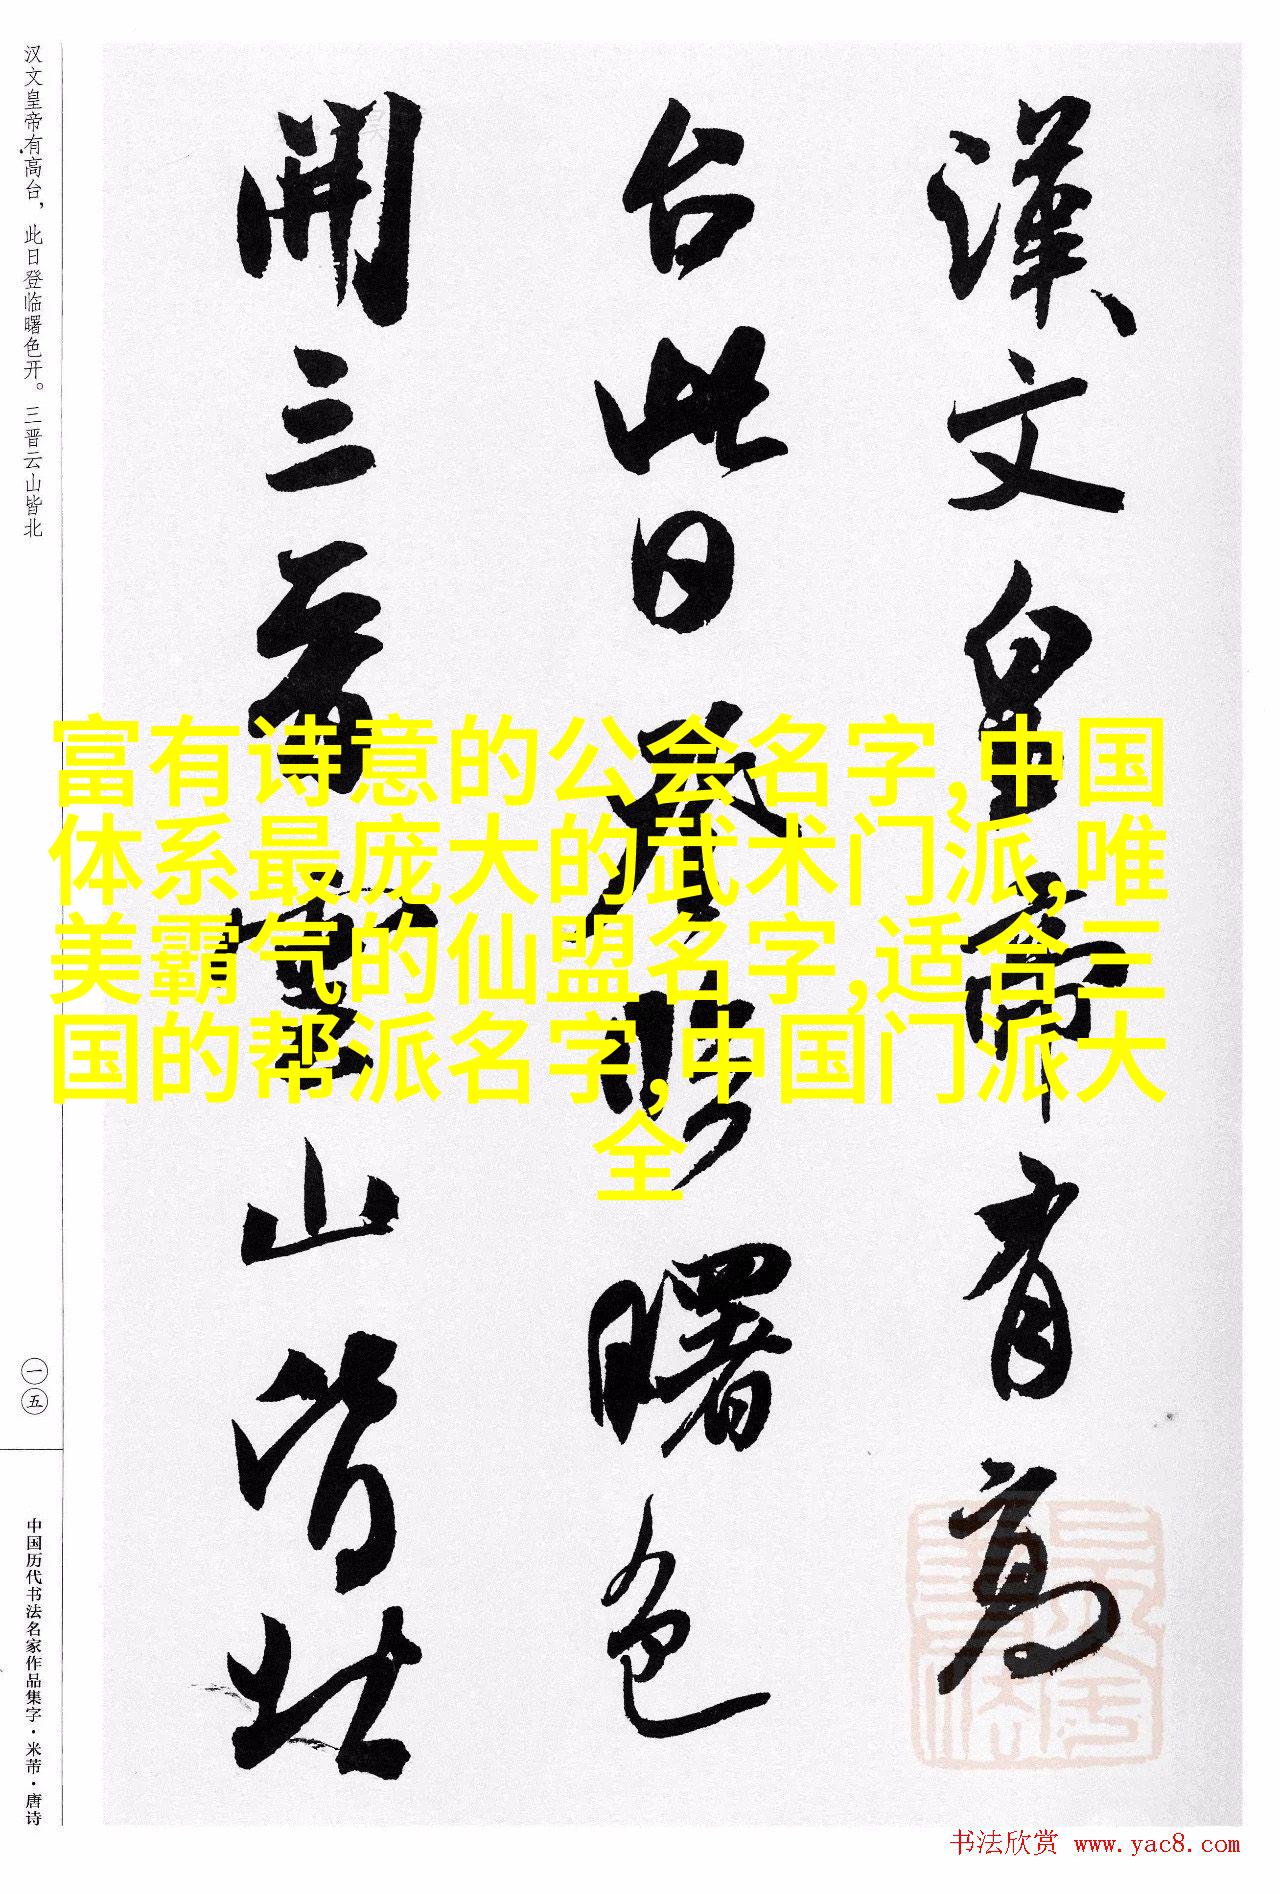 漢文皇帝有高
台此日登临曙色
開三晋雲山皆北
汉文皇帝有高台，此日登临曙色开。三晋云山皆北
一五
中国历代书法名家作品集字·米芾·唐诗
富有诗意的公会名字,中国
体系最庞大的武术门派,唯
美霸气的仙盟名字,适合三
国的帮派名字,中国门派大
全
书法欣赏 www.yac8.com